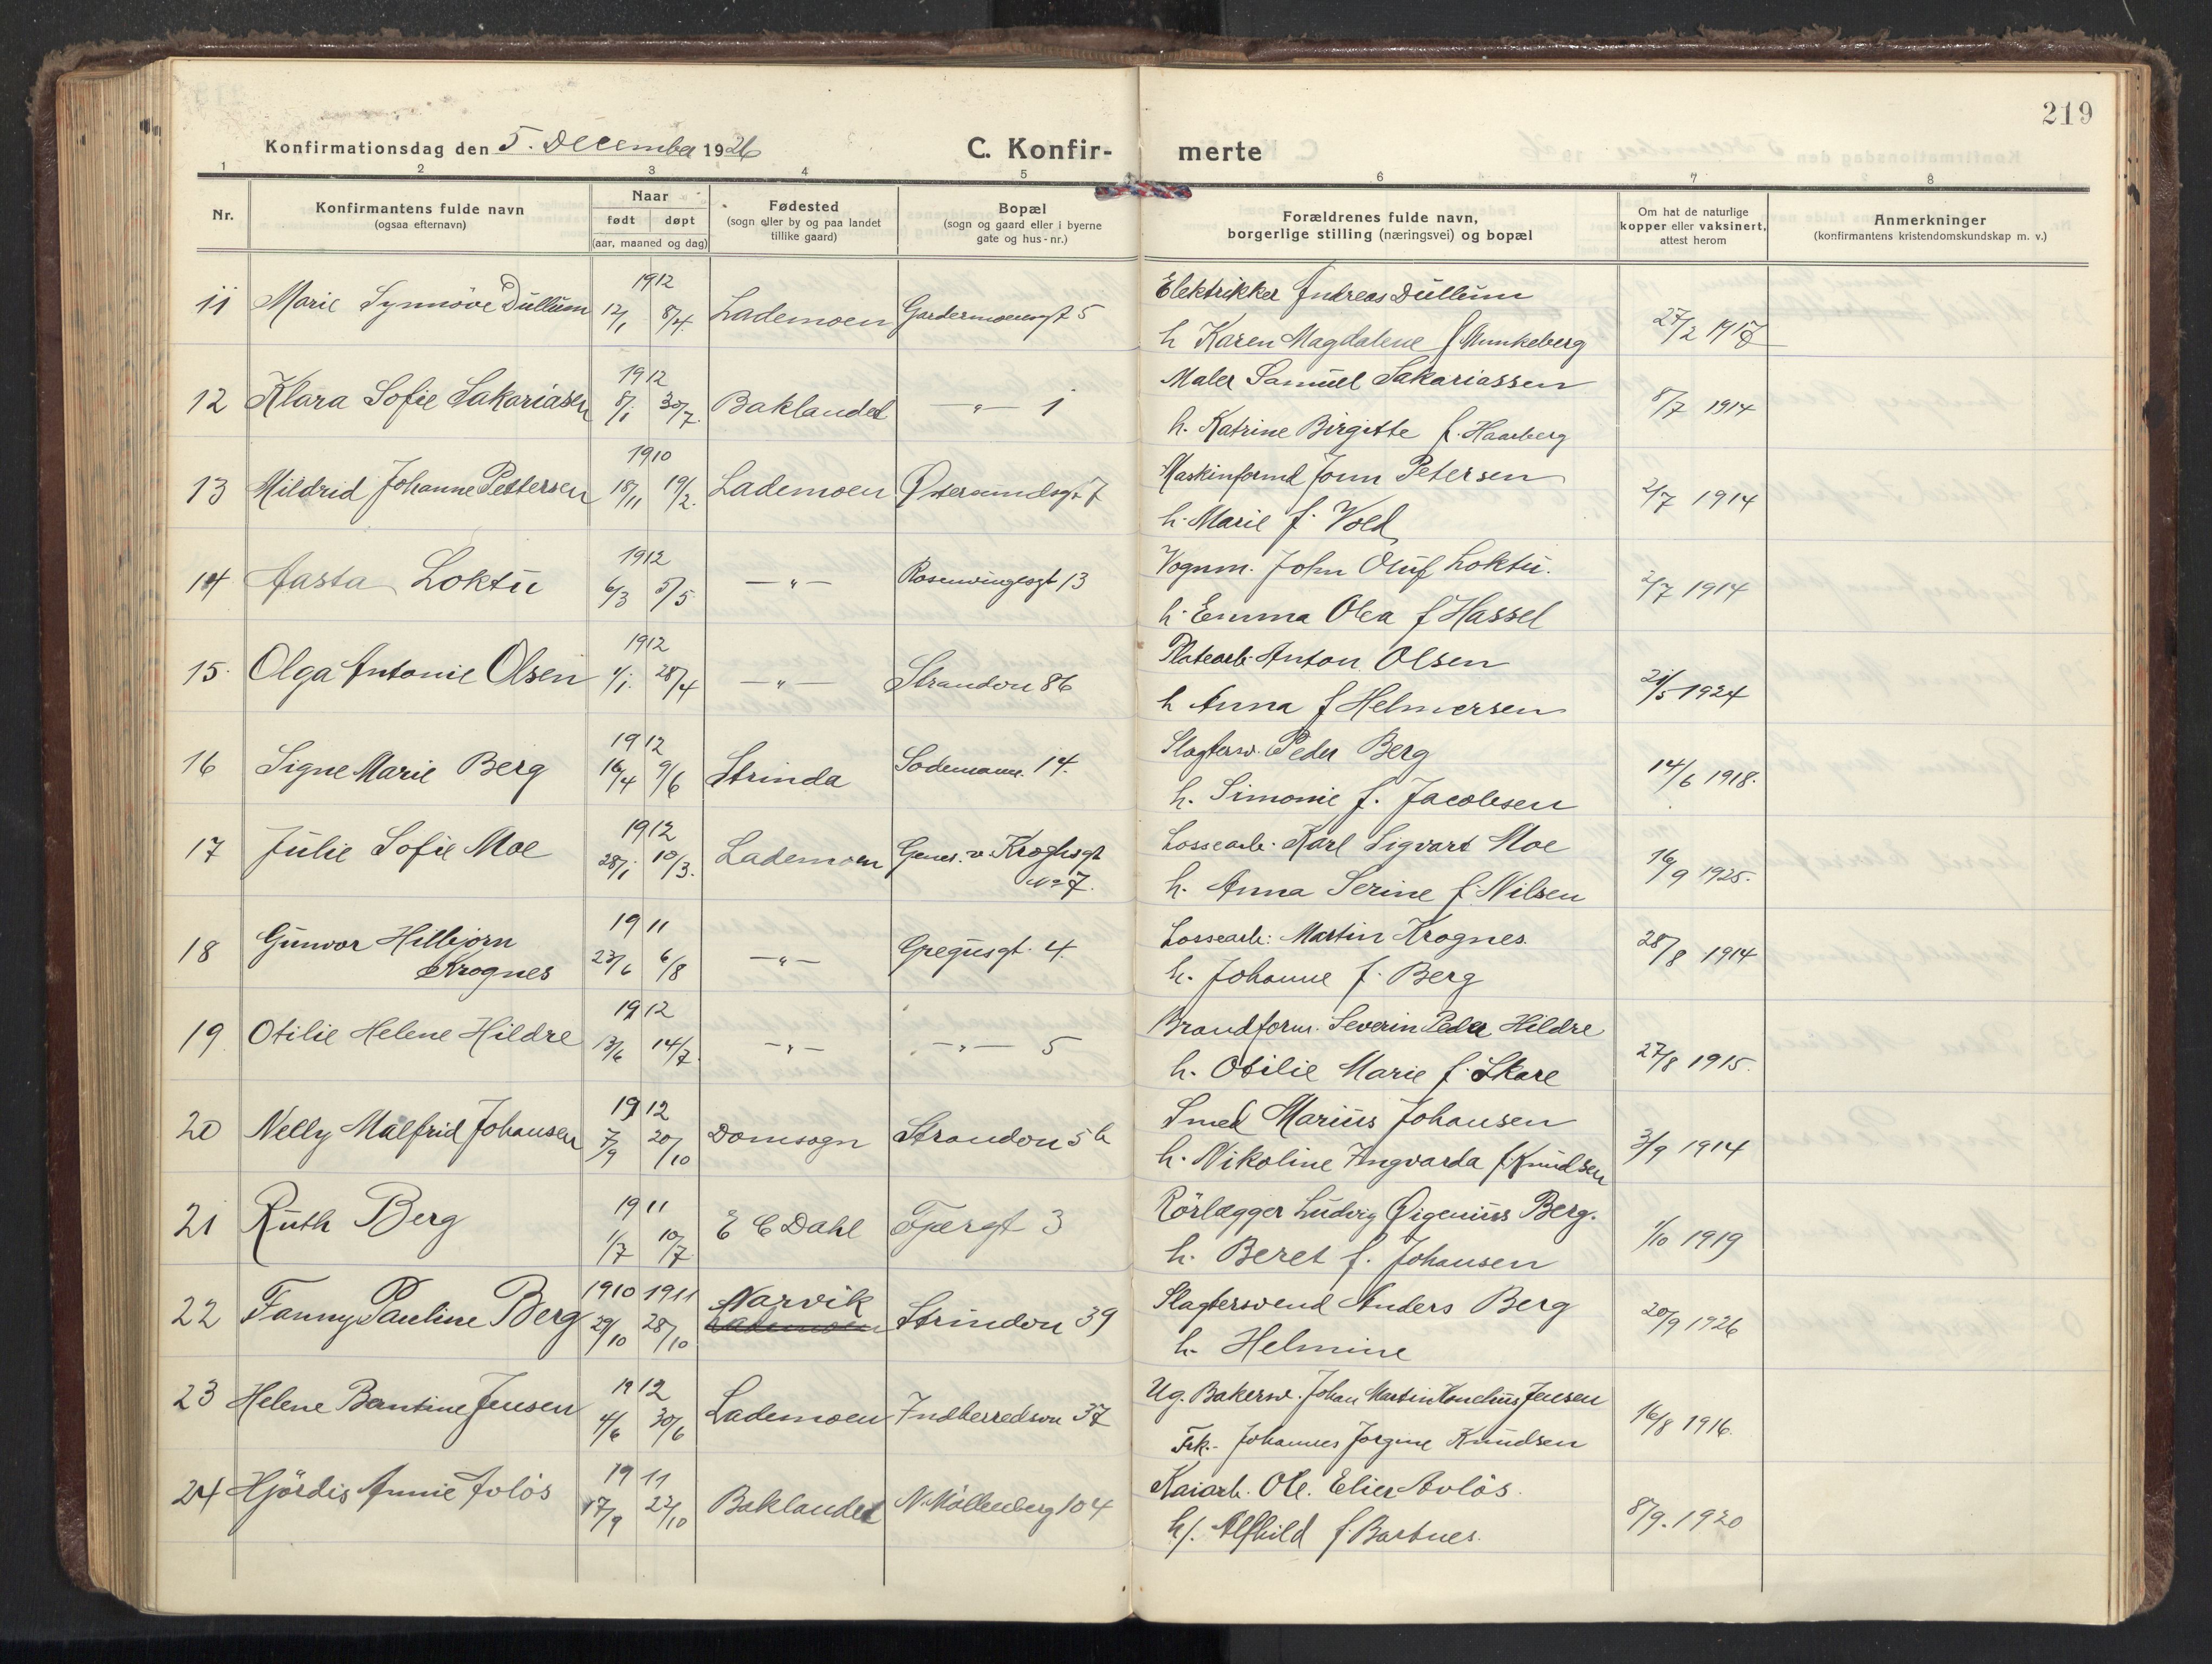 219
Konfirmationsdag den 5. December 1926
C. Konfir- merte
1 2 3 4 5 6 7 8
Nr.
Konfirmantens fulde navn
(ogsaa efternavn)
Naar
født døpt
(aar, maaned og dag)
Fødested
(sogn eller by og paa landet
tillike gaard)
Bopæl
(sogn og gaard eller i byerne
gate og hus-nr.)
Forældrenes fulde navn,
borgerlige stilling (næringsvei) og bopæl
Om hat de naturlige
kopper eller vaksinert,
attest herom
Anmerkninger
(konfirmantens kristendomskundskap m. v.)
1912
11 Marie Synnöve Dullum 12/1 8/4 Lademoen Gardermoensgt 5
Elektrikker Andreas Dullum
h Karen Magdalene f Munkeberg
27/2
1912
12 Klara Sofie Sakariasen 8/1 30/7. Baklandet —"— 1
Maler Samuel Sakariassen
h. Katrine Birgitte f. Haarberg
8/7 1914
1910
13 Mildrid Johanne Pettersen 18/11 19/2. Lademoen 7
Maskinformd Petersen
h. Marie f. Vold
2/7 1914
1912
14 Aasta Loktu 6/3 5/5 —"— Rosenvingesgt 13
Vognm. John Oluf Loktu.
h. Emma Olea f Hassel
2/7 1914
1912
15. Olga Antonie Olsen 4/1. 28/4 —"— Strandvn 86
Platearb. Anton Olsen
h Anna f Helmersen
21/5 1924
1912
16 Signe Marie Berg 16/4 9/6 Strinda Sodemanns. 14.
Slagtersv. Peder Berg
h. Simonie f. Jacobsen
14/6 1918.
1912
17 Julie Sofie Moe 28/1 10/3. Lademoen Gener. v. Kroghsgt
No 7.
Lossearb. Karl Sigvart Moe
h. Anna Serine f. Nilsen
16/9 1925.
1911
18 Gunvor Hilbjorn
Krognes 23/6 6/8 —"— Gregusgt. 4.
Lossearb: Martin Krognes.
h. Johanne f. Berg
28/8 1914
1912
19 Otilie Helene Hildre 13/6 14/7. —"— —"— 5
Brandform. Severin Peder Hildre
h. Otilie Marie f. Skare
27/8 1915.
1912
20 Nelly Malfrid Johansen 7/9 20/10 Domsogn Strandvn 5b
Smed Marius Johansen
h. Nikoline Ingvarda f. Knudsen
3/9 1914
1911
21 Ruth Berg 1/7 10/7. E C Dahl Tjærgt 3
Rörlægger Ludvig Berg.
h. Beret f. Johansen
1/10 1919
1910 1911
22 Fanny Pauline Berg 29/10 28/10 Narvik
Lademoen Strindvn 39
Slagtersvend Anders Berg
h. Helmine
20/9 1926
1912
23 Helene Berntine Jensen 4/6 30/6 Lademoen Indherredsvn 37
Ug. Bakersv. Johan Martin Jensen
Frk. Jorgine Knudsen
16/8 1916.
1911
24 Hjördis Annie Avlös 17/9 22/10 Baklandet N. Möllenberg 104
Kaiarb. Ole. Elier Avlös.
h/. Alfhild f. Bartnes.
8/9. 1920